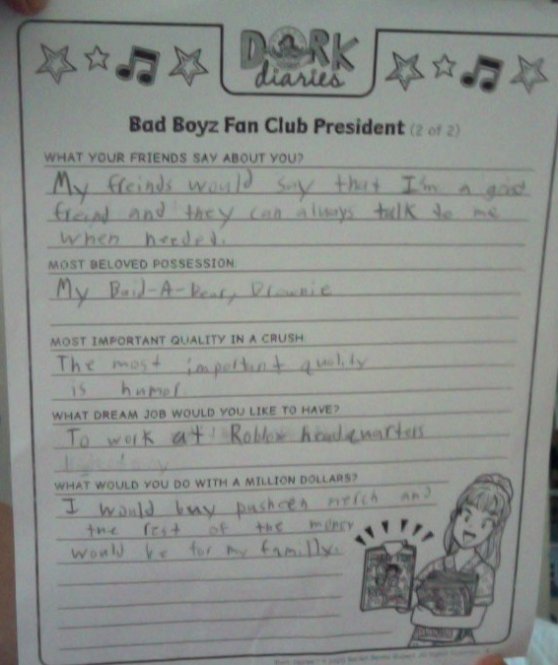 DORK
diaries
Bad Boyz Fan Club President (2 of 2)
WHAT YOUR FRIENDS SAY ABOUT YOU?
My freinds would say that I'm a good
freind and they can always talk to me
when needed.
MOST BELOVED POSSESSION
My Buid-A-Bear, Brownie
MOST IMPORTANT QUALITY IN A CRUSH
The most important quality
is humor.
WHAT DREAM JOB WOULD YOU LIKE TO HAVE?
To work at Roblox headquarters
WHAT WOULD YOU DO WITH A MILLION DOLLARS?
I would buy pusheen merch and
the rest of the money
would be for my familly.